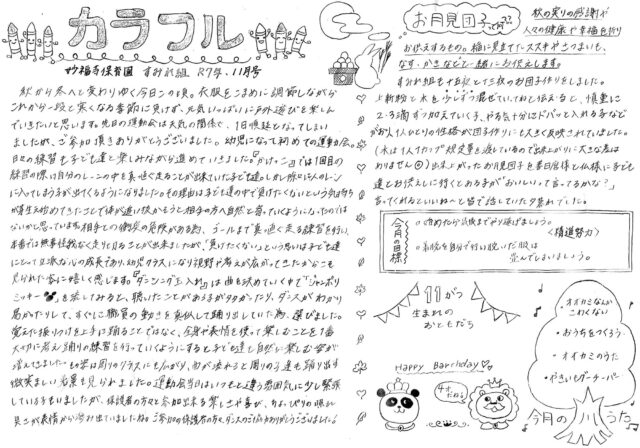 カラフル
妙福寺保育園 すみれ組 R7年.11月号
秋から冬へと変わりゆく今日この頃。衣服をこまめに調節しながら
これから一段と寒くなる季節に負けず、元気いっぱいに戸外遊びを楽しん
でいきたいと思います。先日の運動会は天気の関係で、1日順延となってしまい
ましたが、ご参加頂きありがとうございました。幼児になって初めての運動会。
日々の練習も子ども達と楽しみながら進めていきました。『かけっこ』では1回目の
練習の際に自分のレーンの中を真っ直ぐ走ることが出来ていた子ども達。しかし
に入ってしまう子が出てくるようになりました。その理由は子ども達の中で負けたくないという気持ち
が芽生え始めてきたことで体が近い相手の方へ自然と寄っていくようになったのでは
ないかと思っています。相手との衝突の危険がある為、ゴールまで真っ直ぐ走る練習を行い、
本番では無事怪我なく走りきることが出来ましたが、「負けたくない」という思いは子ども達
にとって立派な心の成長であり、幼児クラスになり視野や考えが広がってきたからこそ
見られた姿に嬉しく感じます。『ダンシング玉入れ』は曲を決めていく中で「ジャンボリ
ミッキー」を流してみると、聴いたことがある子が多かったり、ダンスがわかり
易かったりして、すぐに職員の動きを真似して踊り出していた為、選びました。
覚えた振りつけを上手に踊ることではなく、全身や表情を使って楽しむことを1番
大切に考え踊りの練習を行っていくようにすると子ども達も自然と楽しむ姿が
増えてきました
微笑ましい光景も見られました。運動会当日はいつもと違う雰囲気に少し緊張
している子もいましたが、保護者の方々と参加出来る楽しさや喜び、ちょっぴりの照れ
臭さが表情から溢れ出ていましたね。ご参加の保護者の方々、ダンスのご協力ありがとうございました。
お月見団子って何??
秋の実りの感謝や
人々の健康や幸福を祈り
お供えするもの。稲に見立てたススキやさつまいも、
なす、かきなどと一緒にお供えします。
すみれ組も十五夜と十三夜のお団子作りをしました。
上新粉と水を少しずつ混ぜていってねと伝えると、慎重に
2・3滴ずつ加えていく子、待ちきれずにドバっと入れる子など
お1人おひとりの性格が団子作りにも大きく反映されていました。
(水は1人1カップ規定量を渡しているので出来上がりに大きな差は
ありません)出来上がったお月見団子を春日佐保と仏様に子ども
達とお供えしに行くとある子が“おいしいって言ってるかな?”
言ってくれるといいね〜と皆で話していた夕暮れでした。
今月の目標
○始めたら最後までやり遂げましょう。
<精進努力>
○着脱を自分で行い脱いだ服は
畳んでしまいましょう。
11がつ
生まれの
おともだち
Happy Barthday
4才だね
・オオカミなんか
こわくない
・おうちをつくろう
・オオカミのうた
・やきいもグーチーパー
今月のうた